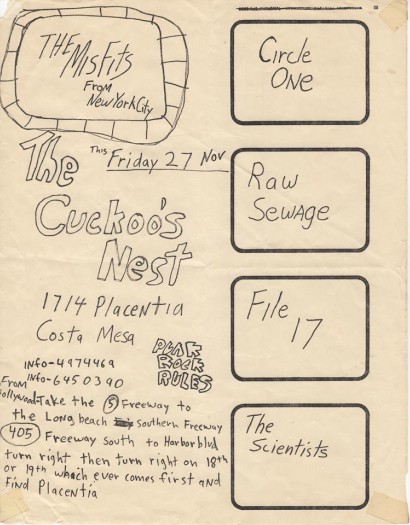 THE MISFITS
FROM
New York City
This Friday 27 Nov
The
Cuckoo's
Nest
1714 Placentia
Costa Mesa
PUNK
ROCK
RULES
info-4974469
info-6450390
From Hollywood-Take the 5 Freeway to
the Long beach Southern Freeway
405 Freeway South to Harbor blvd
turn right then turn right on 18th
or 19th which ever comes first and
Find Placentia
Circle
ONE
Raw
Sewage
File
17
The
Scientists